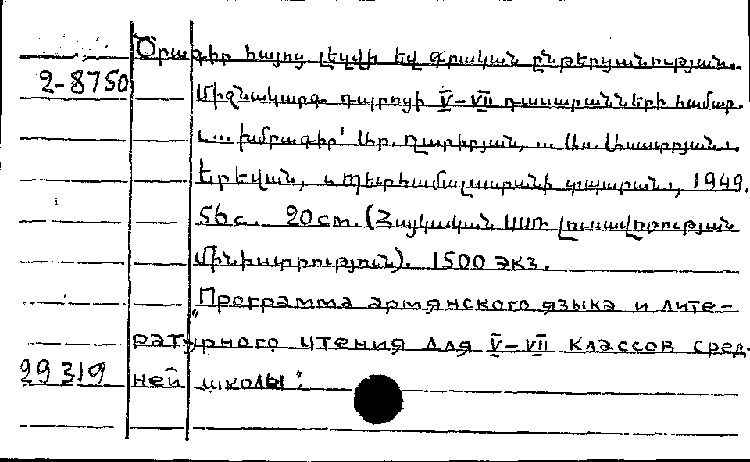 Ծրագիր հայոց լեզվի եվ գրական ընթերցանության.
2-8750
Միջնակարգ դպրոցի V-VII դասարանների համար.
խմբագիր՝ Ար. Ղարիբյան,
Երեվան, պետհամալսարանի տպարան, 1949.
56 с. 20 cm. (Հայկական ՍՍՌ լուսավորության
մինիստրություն). 1500 экз.
"Программа армянского языка и лите-
ратурного чтения для V-VII классов сред-
29319 ней школы".